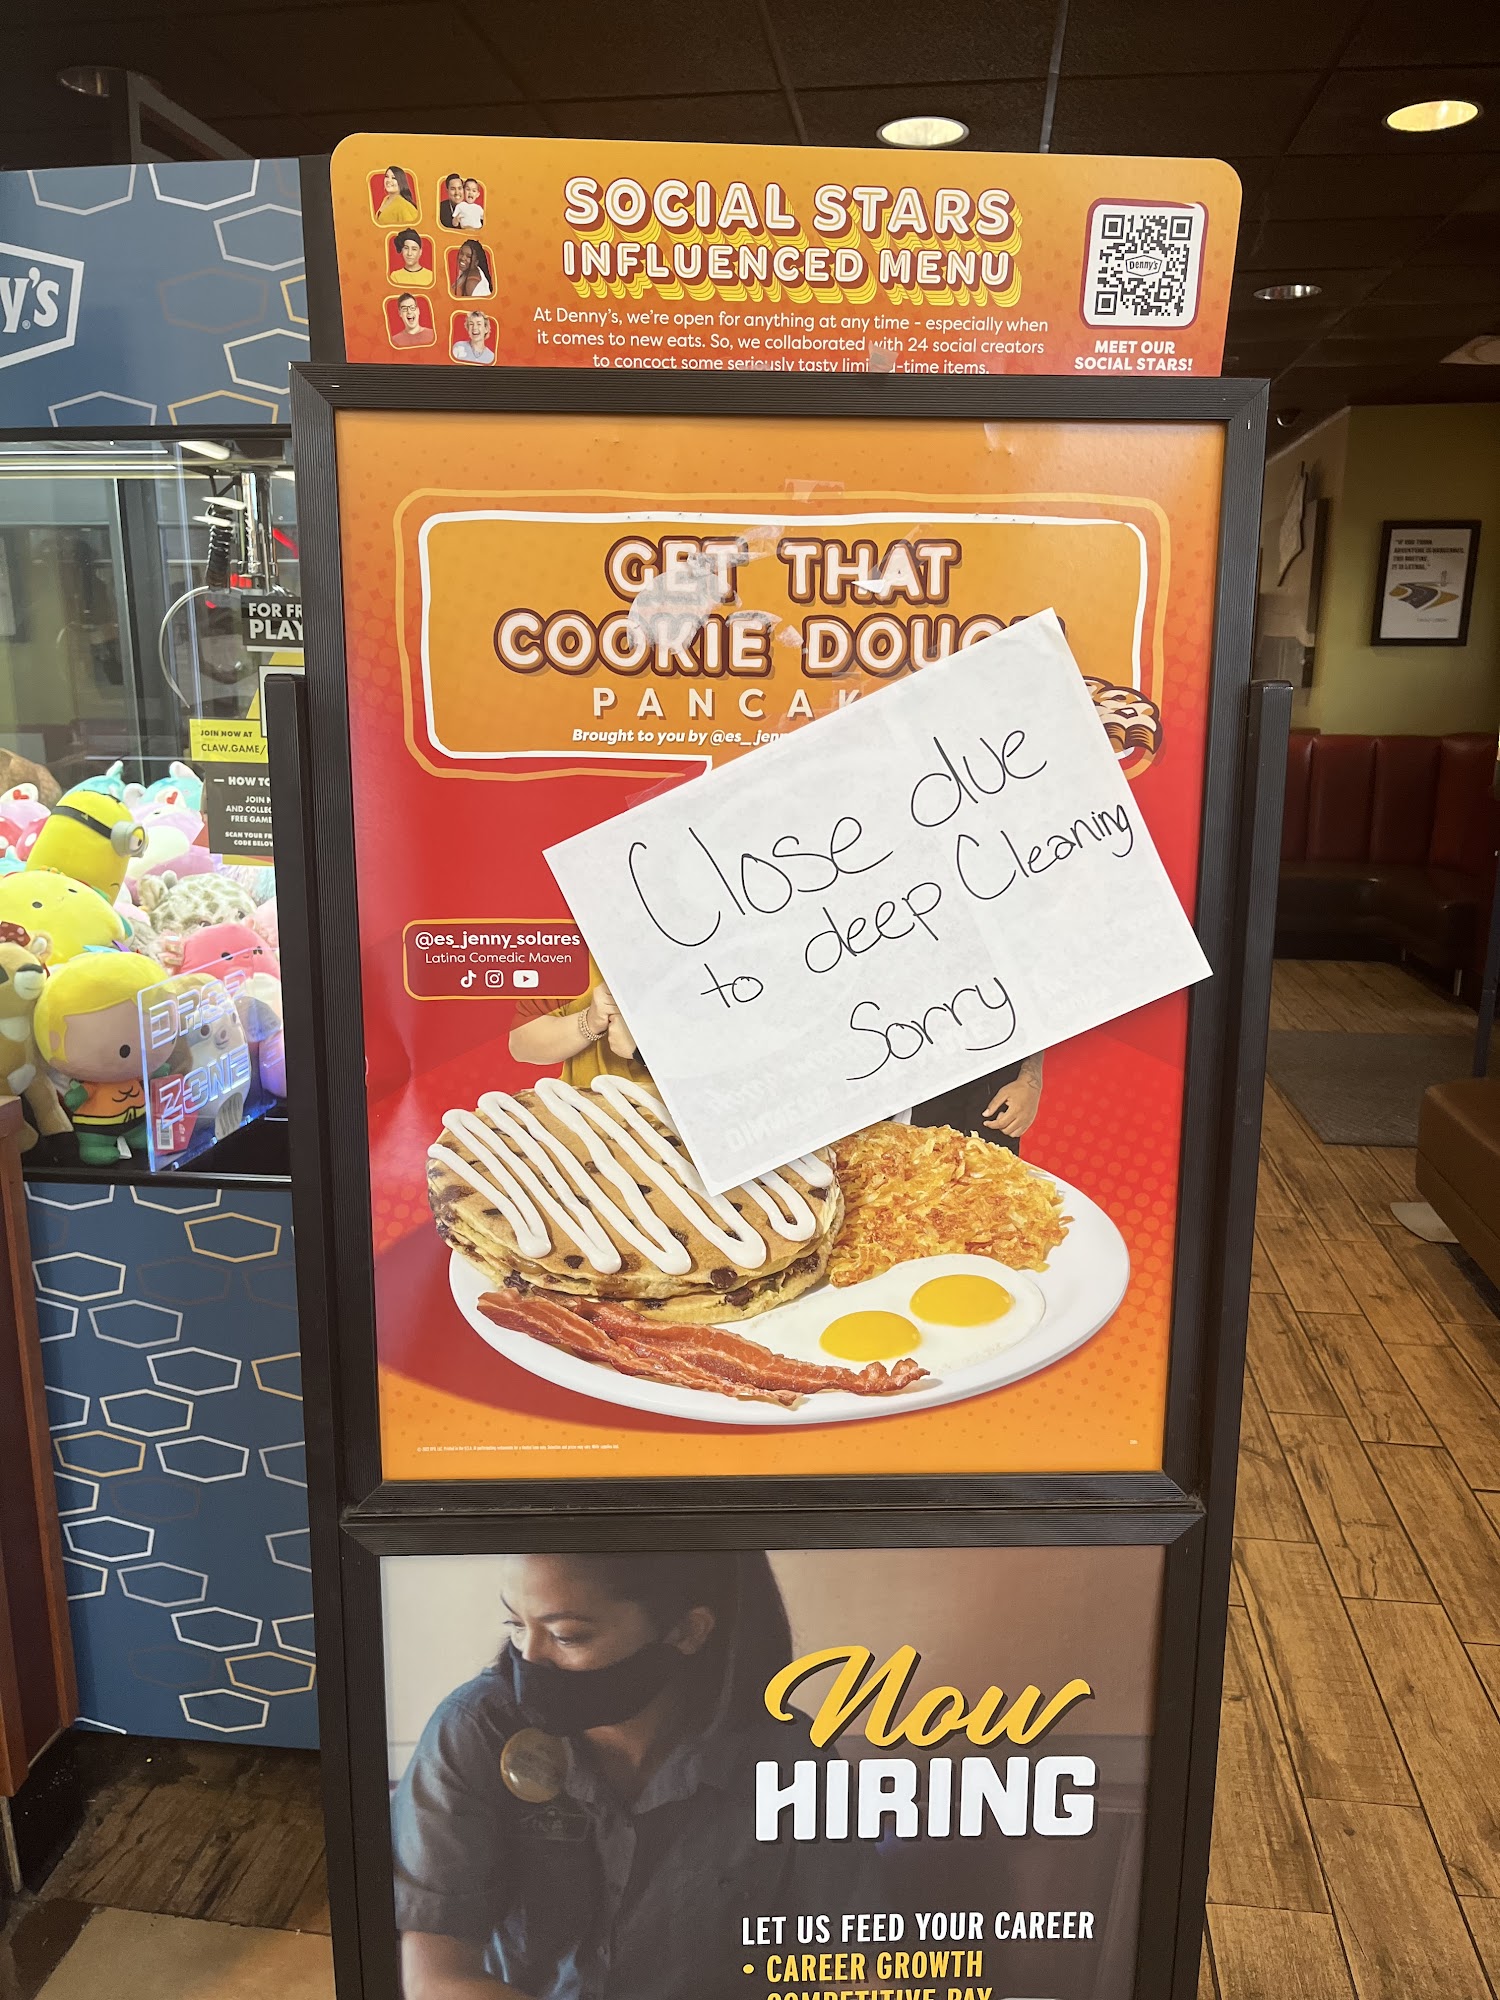 SOCIAL STARS
INFLUENCED MENU
At Denny's, we're open for anything at any time - especially when
it comes to new eats. So, we collaborated with 24 social creators
to concoct some seriously tasty limi -time items.
Denny's
MEET OUR
SOCIAL STARS!
y's
GET THAT
COOKIE DOUG
PANCAK
Brought to you by @es_jen
Close due
to deep Cleaning
Sorry
@es_jenny_solares
Latina Comedic Maven
FOR FR
PLAY
JOIN NOW AT
CLAW.GAME/
— HOW TO
JOIN
AND COLLEC
FREE GAME
SCAN YOUR FR
CODE BELOW
DROP
ZONE
"IF YOU THINK
ADVENTURE IS DANGEROUS,
TRY ROUTINE.
IT IS LETHAL."
Now
HIRING
LET US FEED YOUR CAREER
• CAREER GROWTH
COMPETITIVE PAY